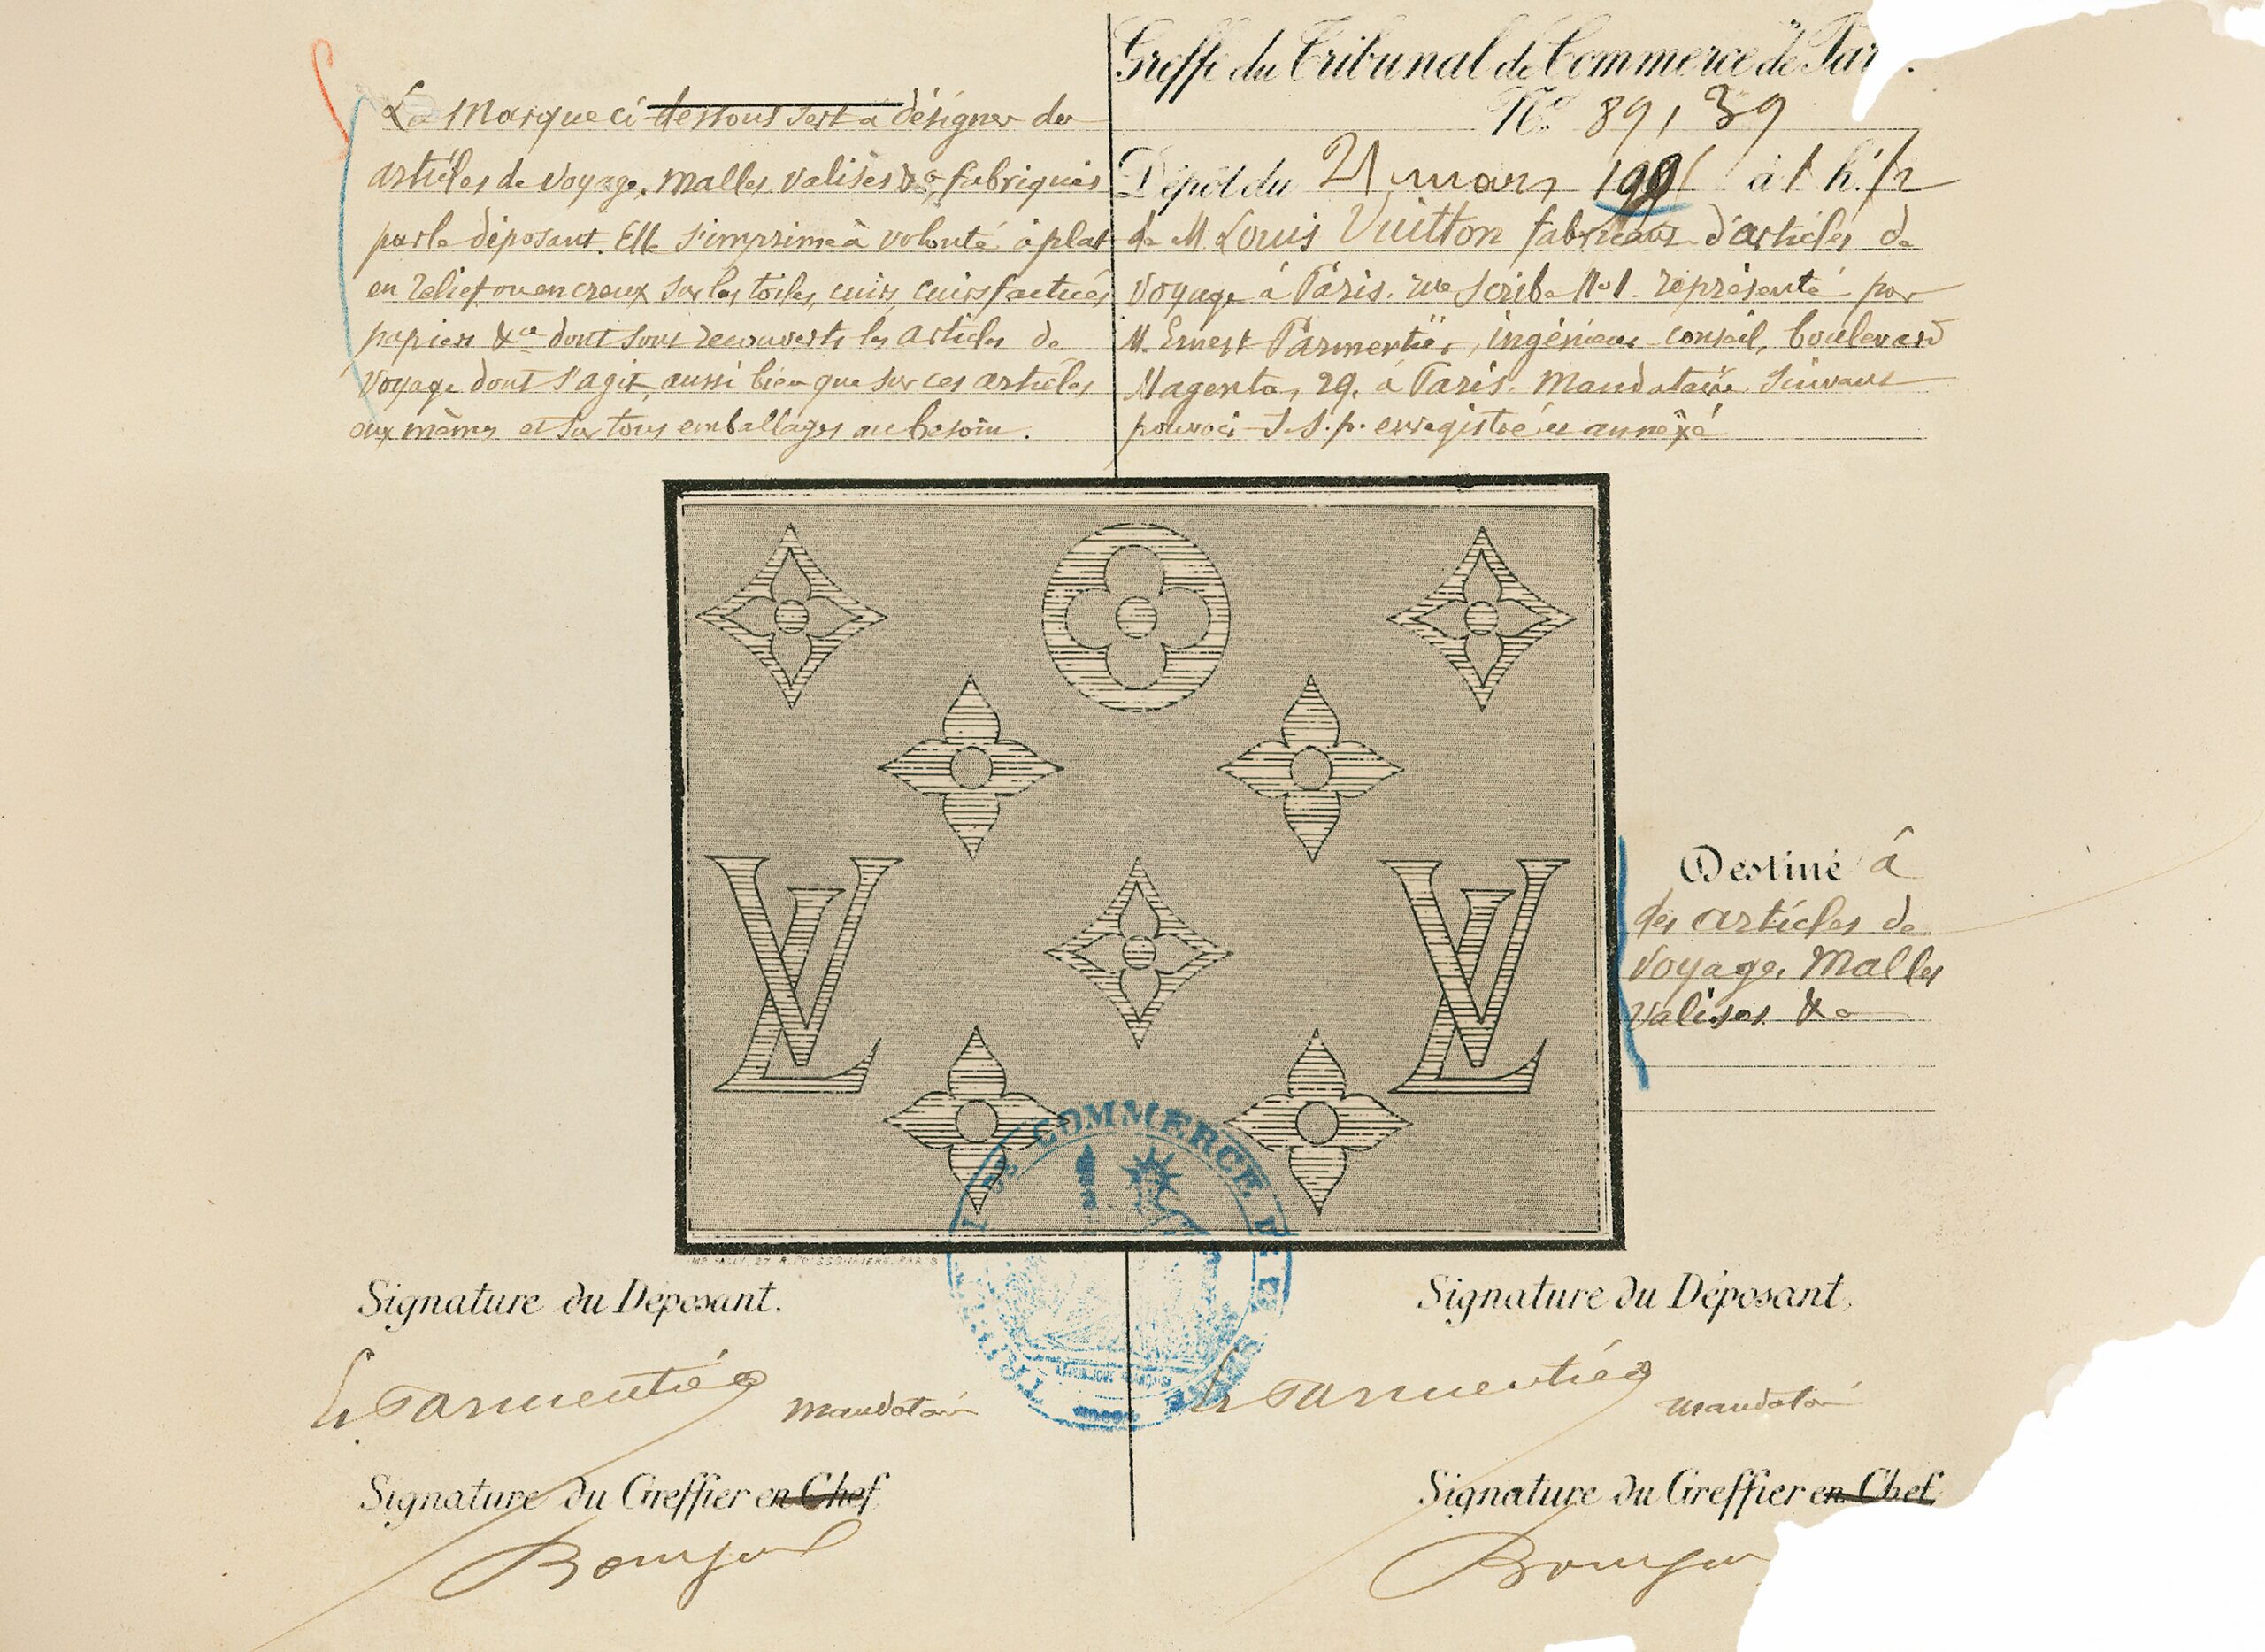 La Marque ci dessous sert à désigner des
articles de voyage, Malles valises &a, fabriqués
par le déposant. Elle s'imprime à volonté à plat
en relief ou en creux sur les toiles, cuirs, cuirs factices,
papiers &ca dont sont recouverts les articles de
voyage dont s'agit, aussi bien que sur ces articles
eux mêmes et sur tous emballages au besoin.
Greffe du Tribunal de Commerce de Par
No 89, 39
Dépôt du 21 mars à 1 h. 1/2
de M Louis Vuitton fabricant d'articles de
voyage à Paris. rue Scribe No 1. représenté par
M. Ernest Parmentier, ingénieur-conseil, boulevard
Magenta, 29. à Paris. Mandataire suivant
pouvoir s.s.p. enregistré et annexé
LV
LV
Destiné à
des articles de
voyage, Malles
valises &a
COMMERCE DE LA SEINE
Signature du Déposant.
E Parmentier Mandataire
Signature du Greffier en Chef
Signature du Déposant,
E Parmentier Mandataire
Signature du Greffier en Chef